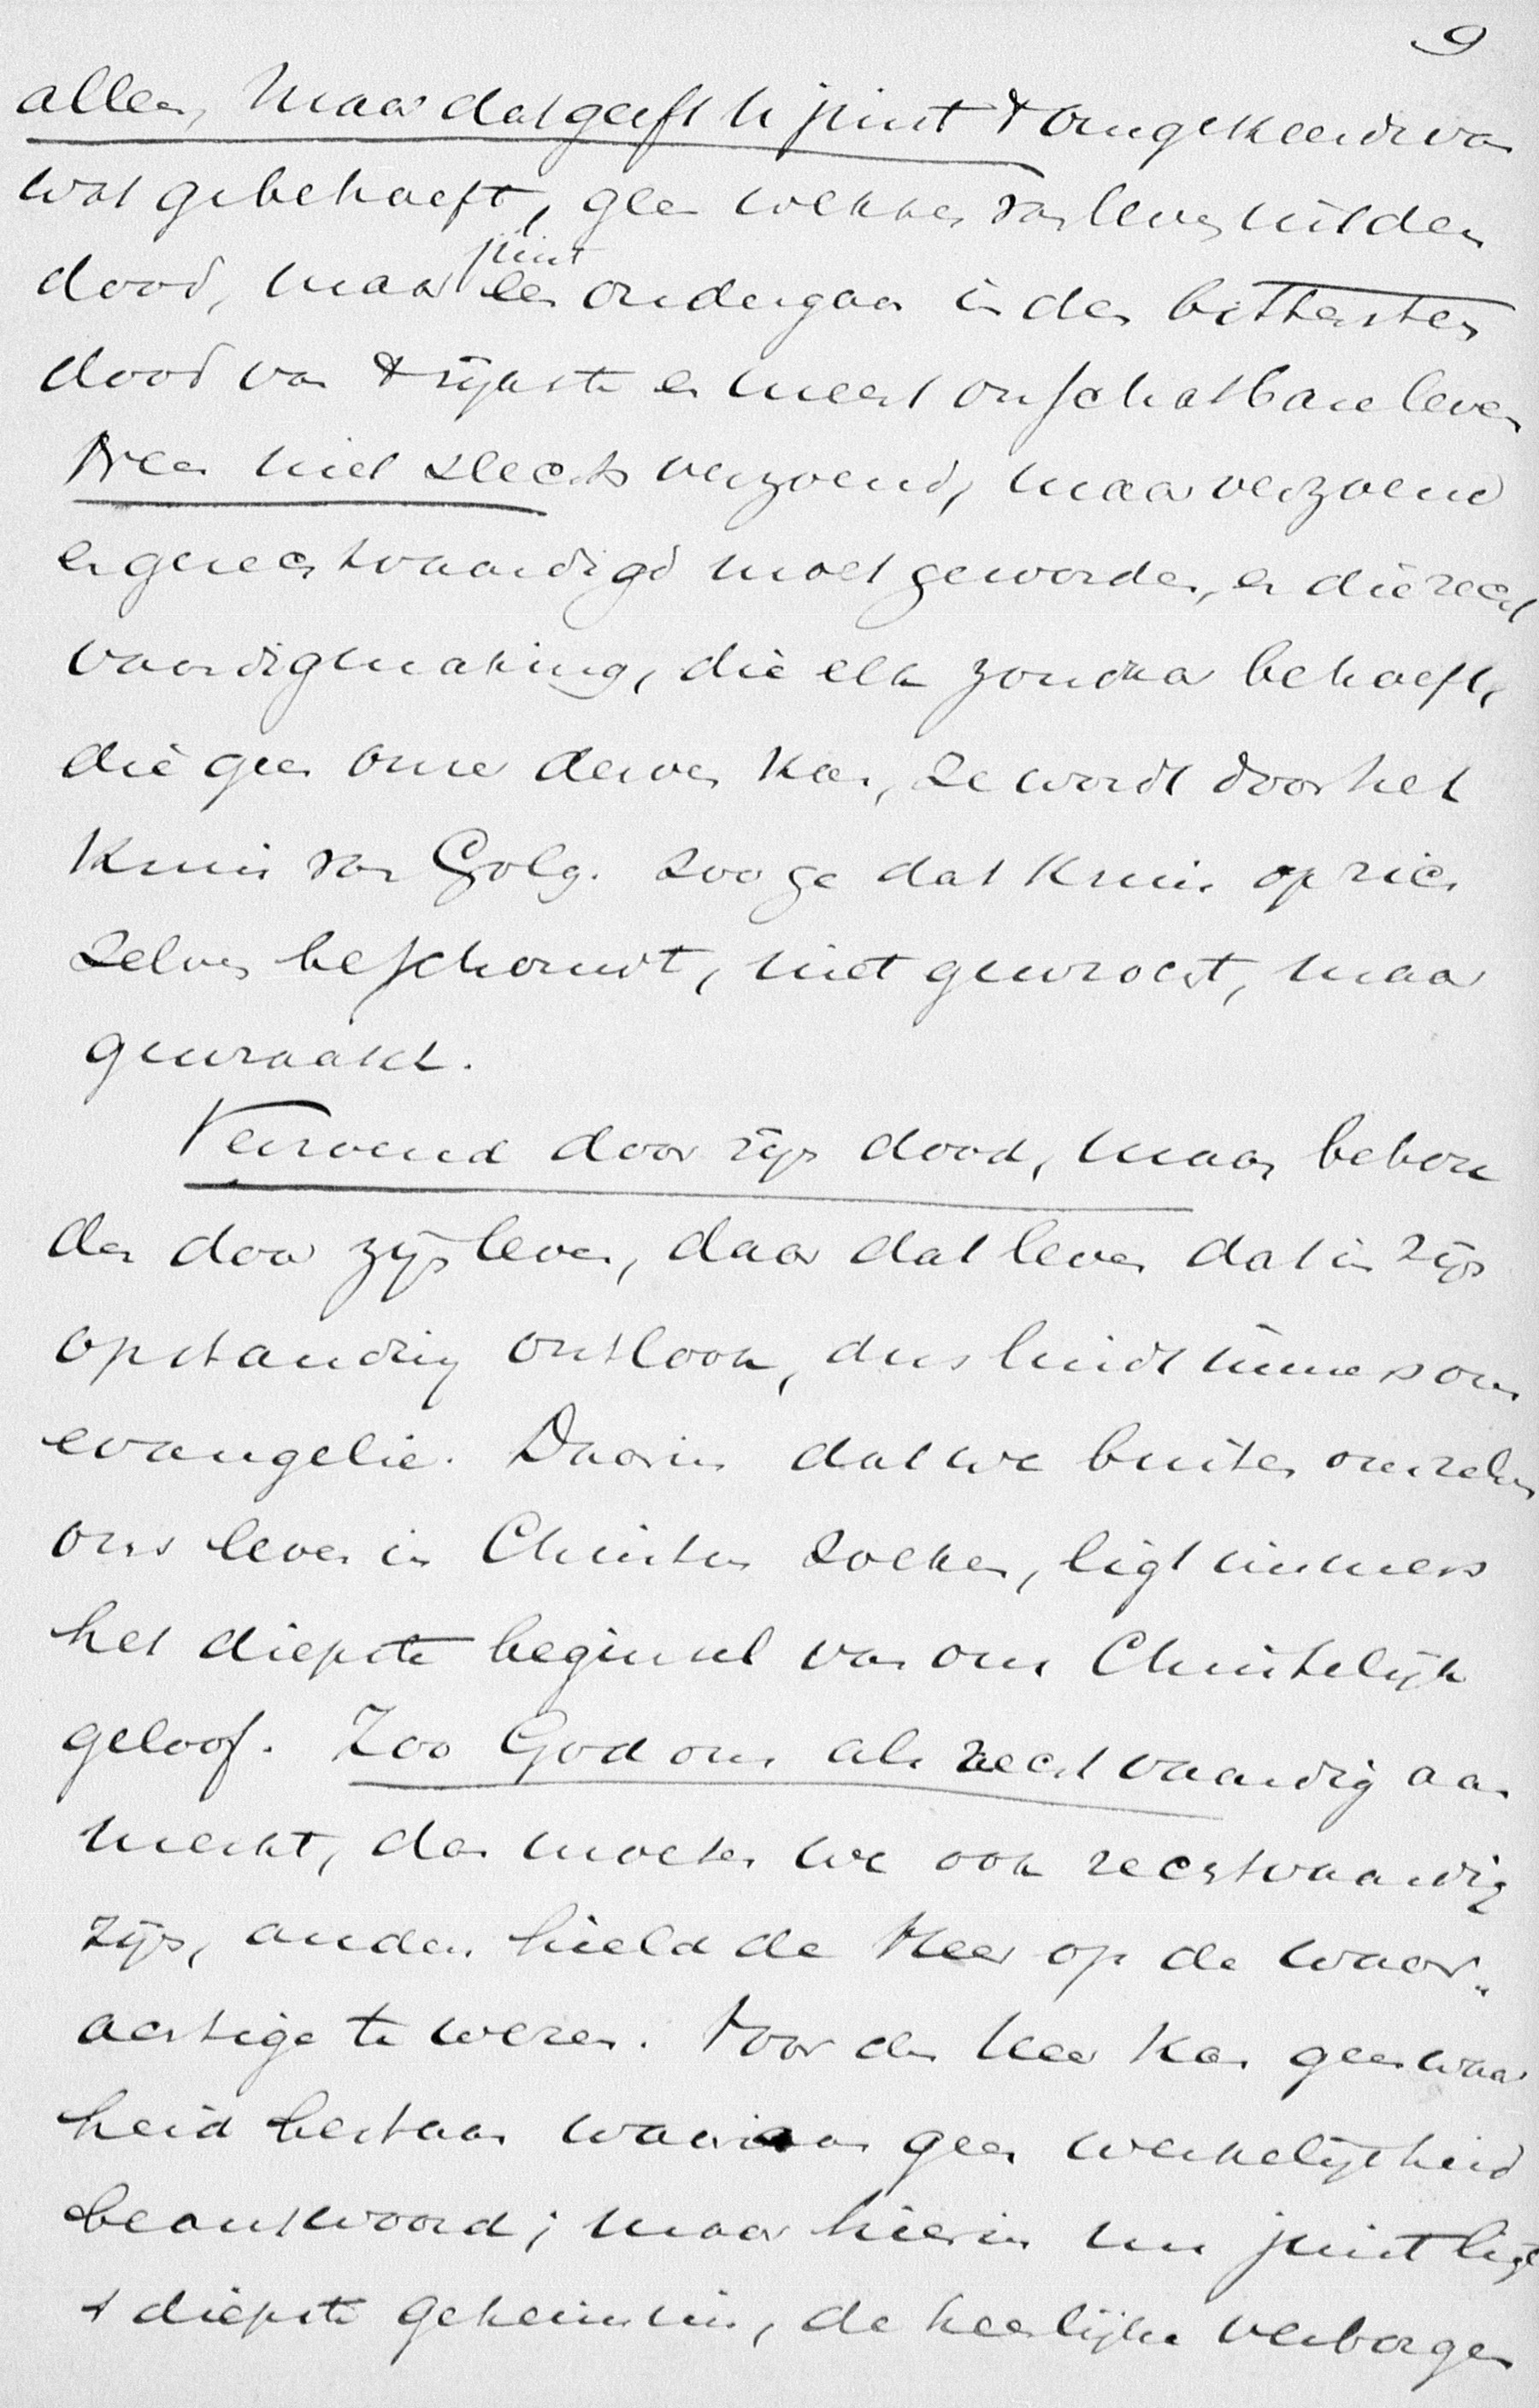 9
allen, maar dat geeft u juist 't omgekeerde van
wat ge behoeft, geen wekken van leven uit den
juist
dood, maar een ondergaan in den bittersten
dood van 't rijkste en meest onschatbare leven
Neen niet slechts verzoend, maar verzoend
en gerechtvaardigd moet geworden, en die recht
vaardigmaking, die elk zondaar behoeft,
die geen onzer derven kan, ze wordt door het
Kruis van Golg. zoo ge dat Kruis op zich
zelven beschouwt, niet gewrocht, maar
gewraakt.
Verzoend door zijn dood, maar behou
den door zijn leven, door dat leven dat in zijn
opstanding ontlook, dus luidt immers ons
evangelie. Daarin dat we buiten onszelven
ons leven in Christus zoeken, ligt immers
het diepste beginsel van ons Christelijk
geloof. Zoo God ons als rechtvaardig aan
merkt, dan moeten we ook rechtvaardig
zijn, anders hield de Heer op de waar„
achtige te wezen. Voor den Heer kan geen waar
heid bestaan waaraan geen werkelijkheid
beantwoord; maar hierin nu juist ligt
't diepste geheimenis, de heerlijke verborgen